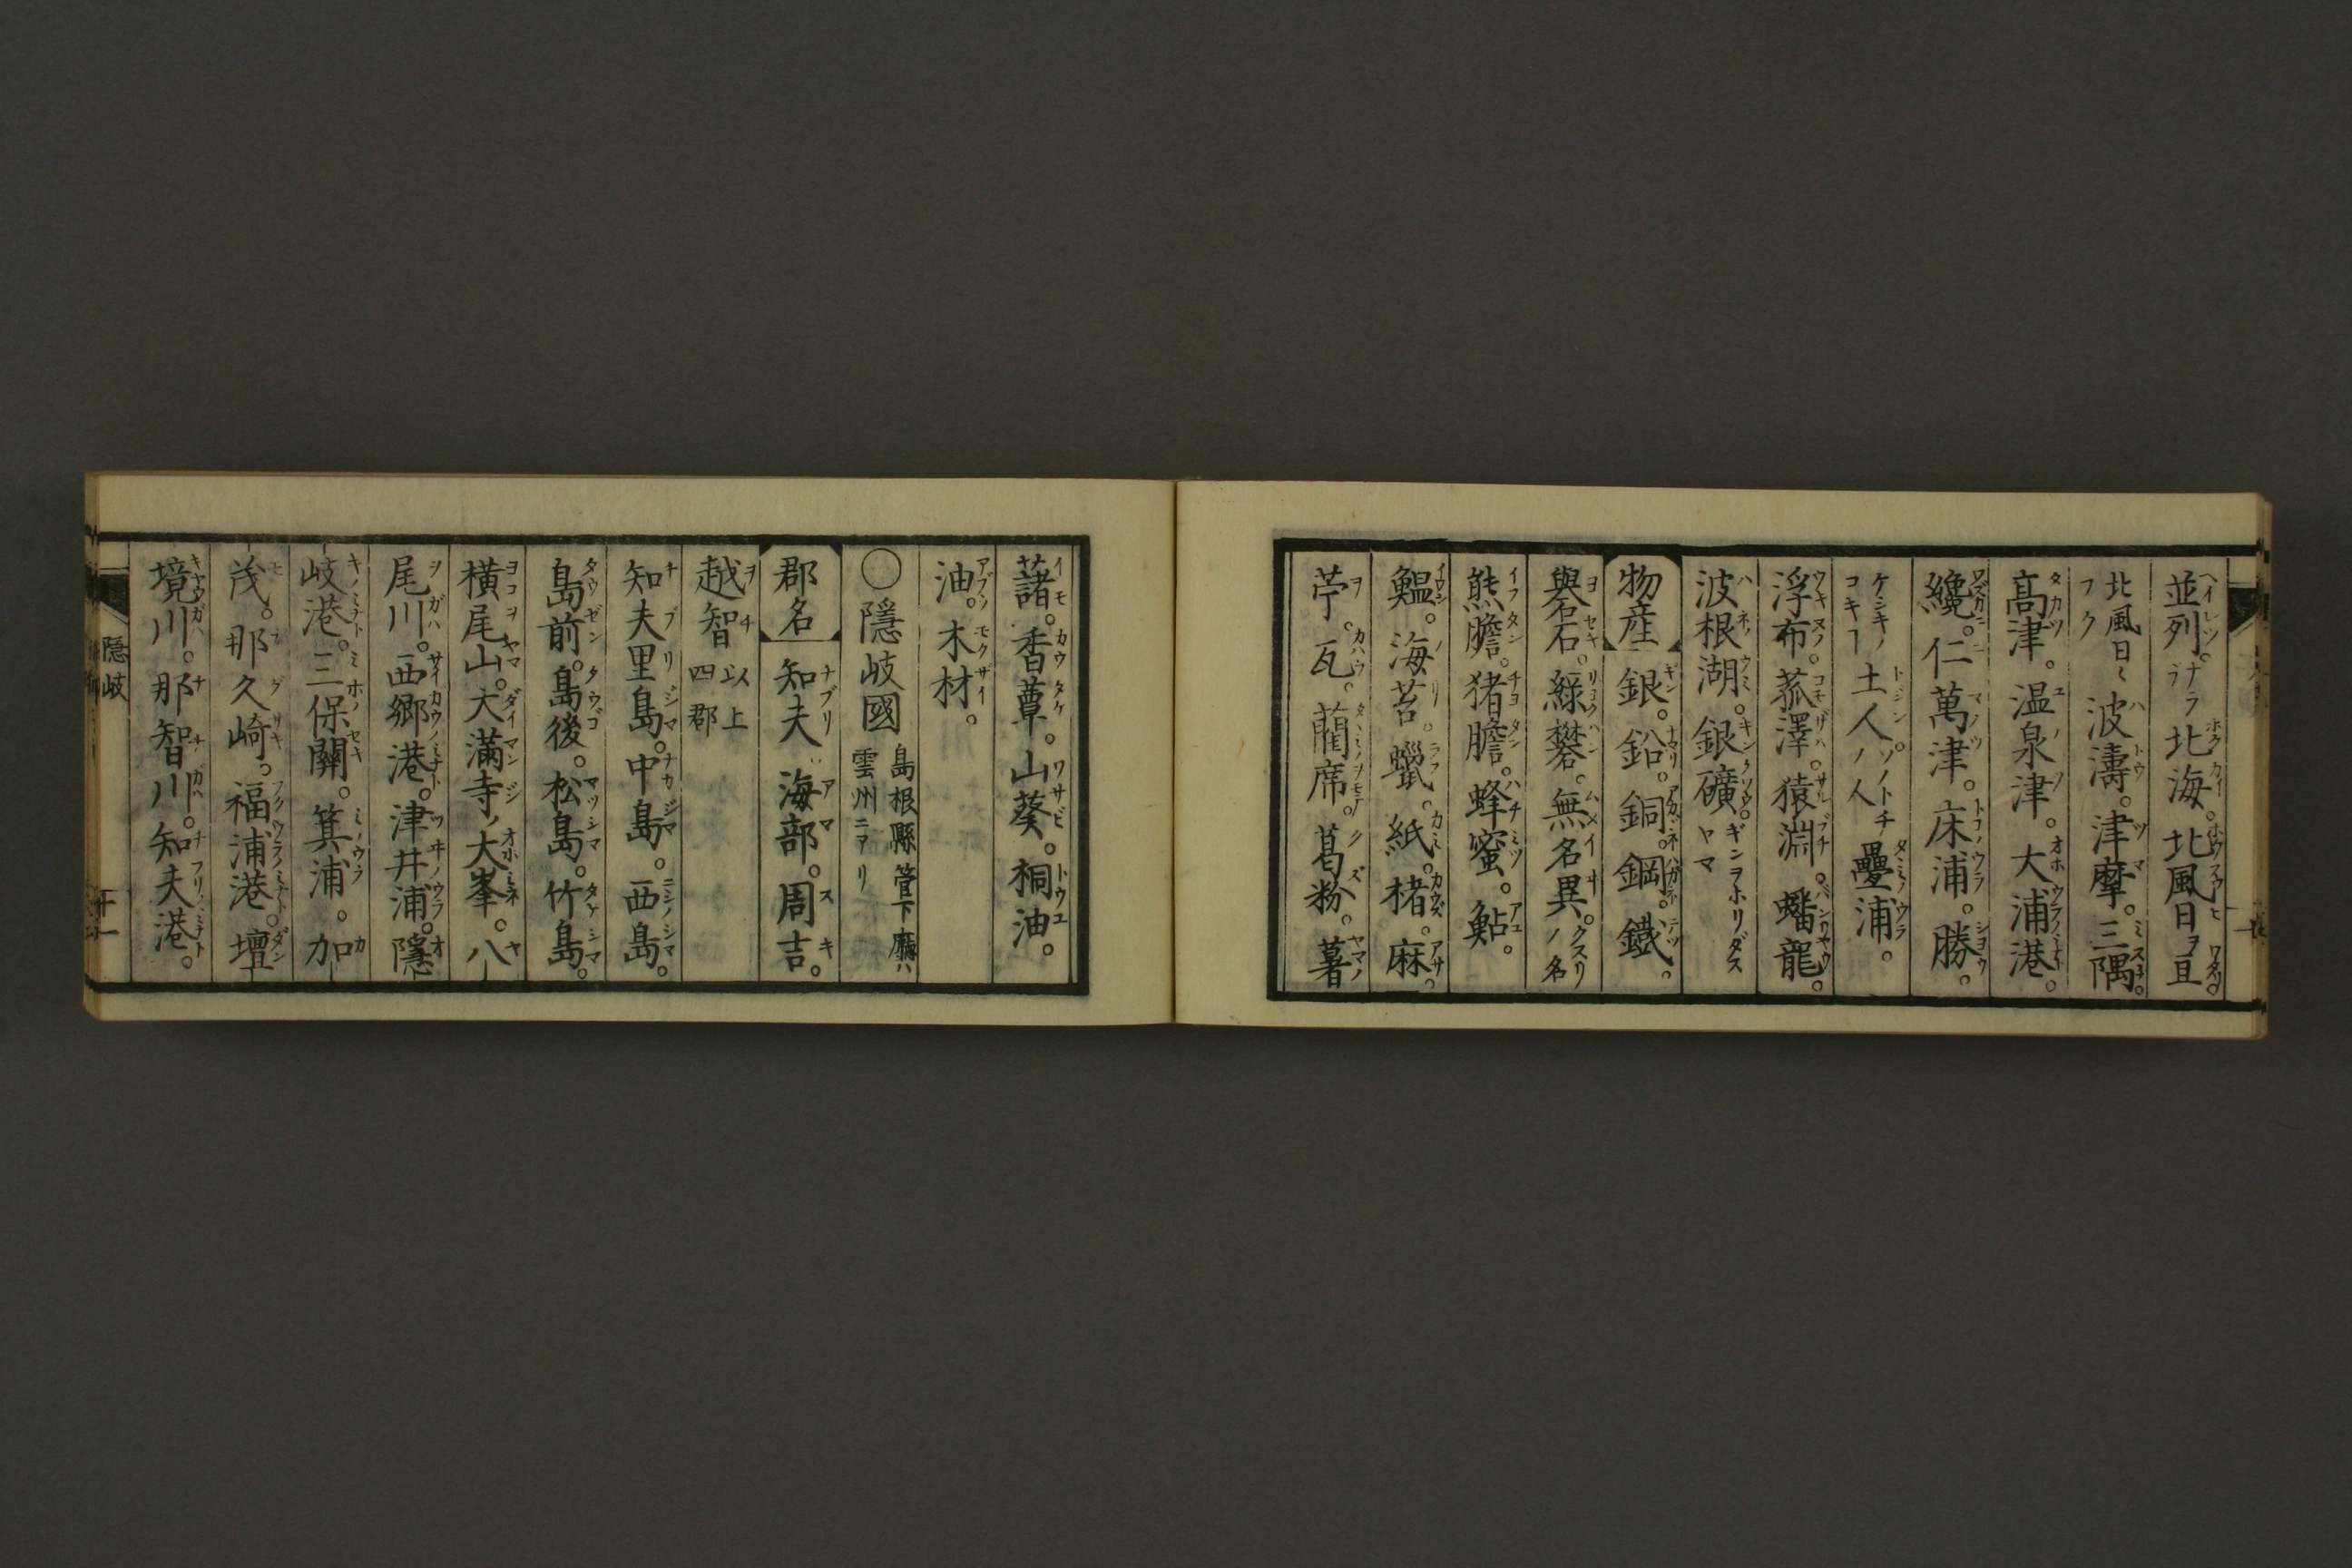 並列。北海。北風日亘
北風日々フク 波濤。津摩。三隅。
高津。温泉津。大浦港。
纔。仁萬津。床浦。勝。
ケシキノコキ 土人ノ人 疊浦。
浮布。菰澤。猿淵。蟠龍。
波根湖。銀礦。ギンヲホリダスヤマ
物産 銀。鉛。銅。鋼。鐵。
礜石。綠礬。無名異。クスリノ名
熊膽。猪膽。蜂蜜。鮎。
鰮。海苔。蠟。紙。楮。麻。
苧。瓦。藺席。葛粉。薯
藷。香蕈。山葵。桐油。
油。木材。
○隱岐國 島根縣管下廳ハ雲州ニアリ
郡名 知夫。海部。周吉。
越智 以上四郡
知夫里島。中島。西島。
島前。島後。松島。竹島。
横尾山。大滿寺ノ大峯。八
尾川。西郷港。津井浦。隱
岐港。三保關。箕浦。加
茂。那久崎。福浦港。壇
境川。那智川。知夫港。
隱岐